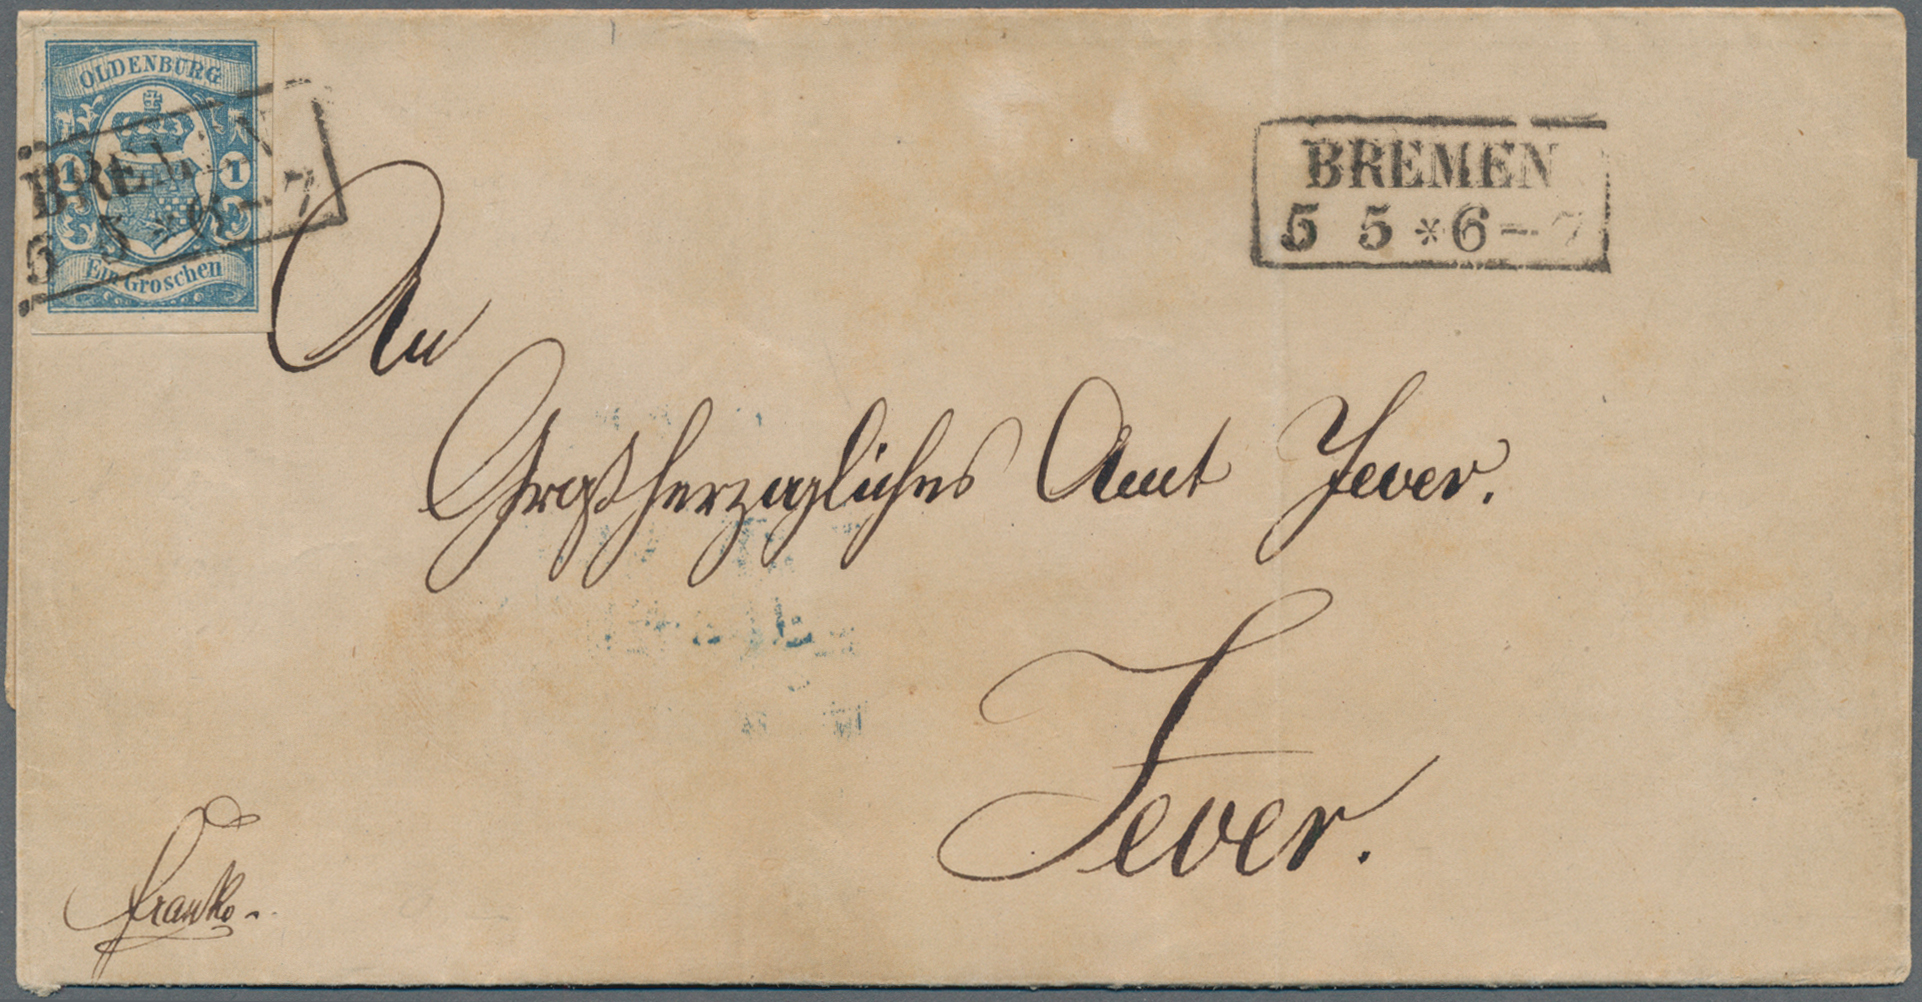 OLDENBURG
1 1
Ein Groschen
BREMEN
5 5 * 6 - 7
BREMEN
5 5 * 6 - 7
An
Großherzogliches Amt Jever.
Jever.
franko.